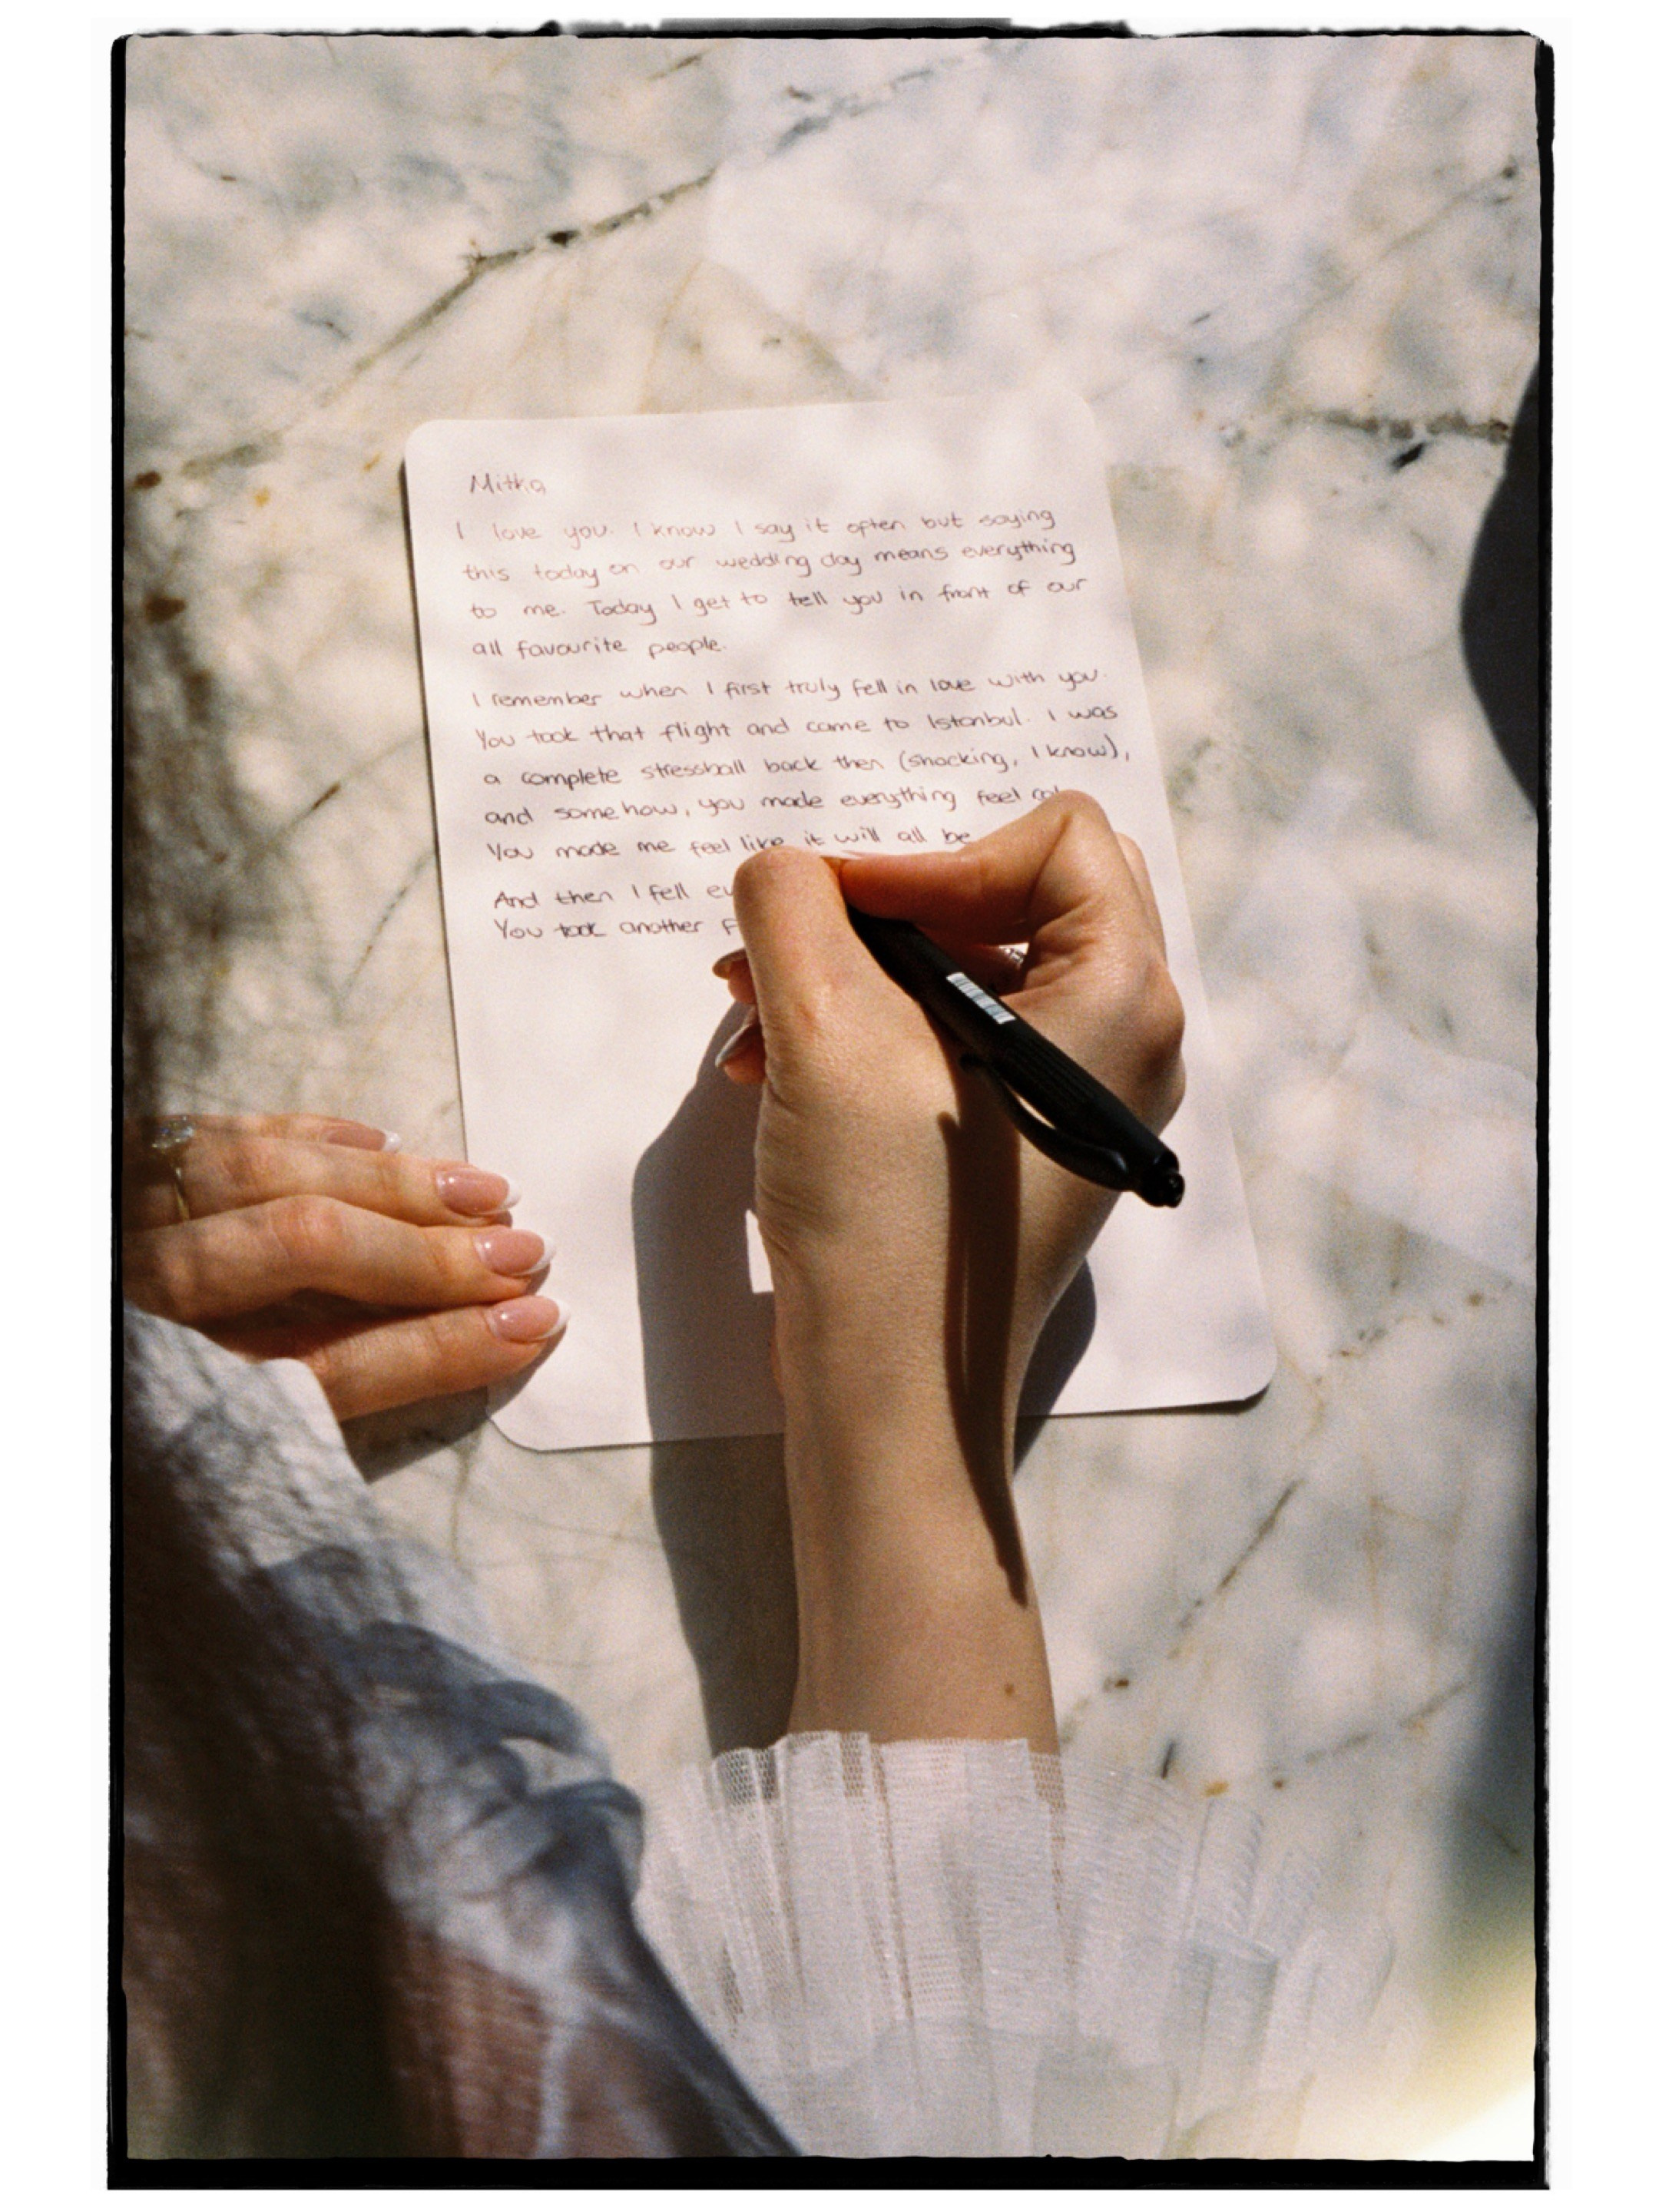 Mitko,
I love you. I know I say it often but saying
this today on our wedding day means everything
to me. Today I get to tell you in front of our
all favourite people.
I remember when I first truly fell in love with you.
You took that flight and came to Istanbul. I was
a complete stressball back then (shocking, I know),
and somehow, you made everything feel
You made me feel like it will all be
And then I fell
You took another